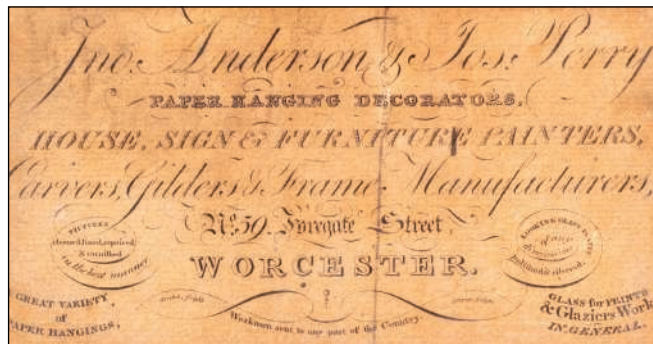 Jno. Anderson & Jos. Perry
PAPER HANGING DECORATORS,
HOUSE, SIGN & FURNITURE PAINTERS,
Carvers, Gilders & Frame Manufacturers,
No. 59. Foregate Street,
WORCESTER.
PICTURES
cleaned, lined, repaired
& varnished
in the best manner
LOOKING GLASS PLATES
of any
dimensions
resilvered.
GREAT VARIETY
of
PAPER HANGINGS,
Workmen sent to any part of the Country.
GLASS for PRINTS
& Glaziers Work
IN GENERAL.